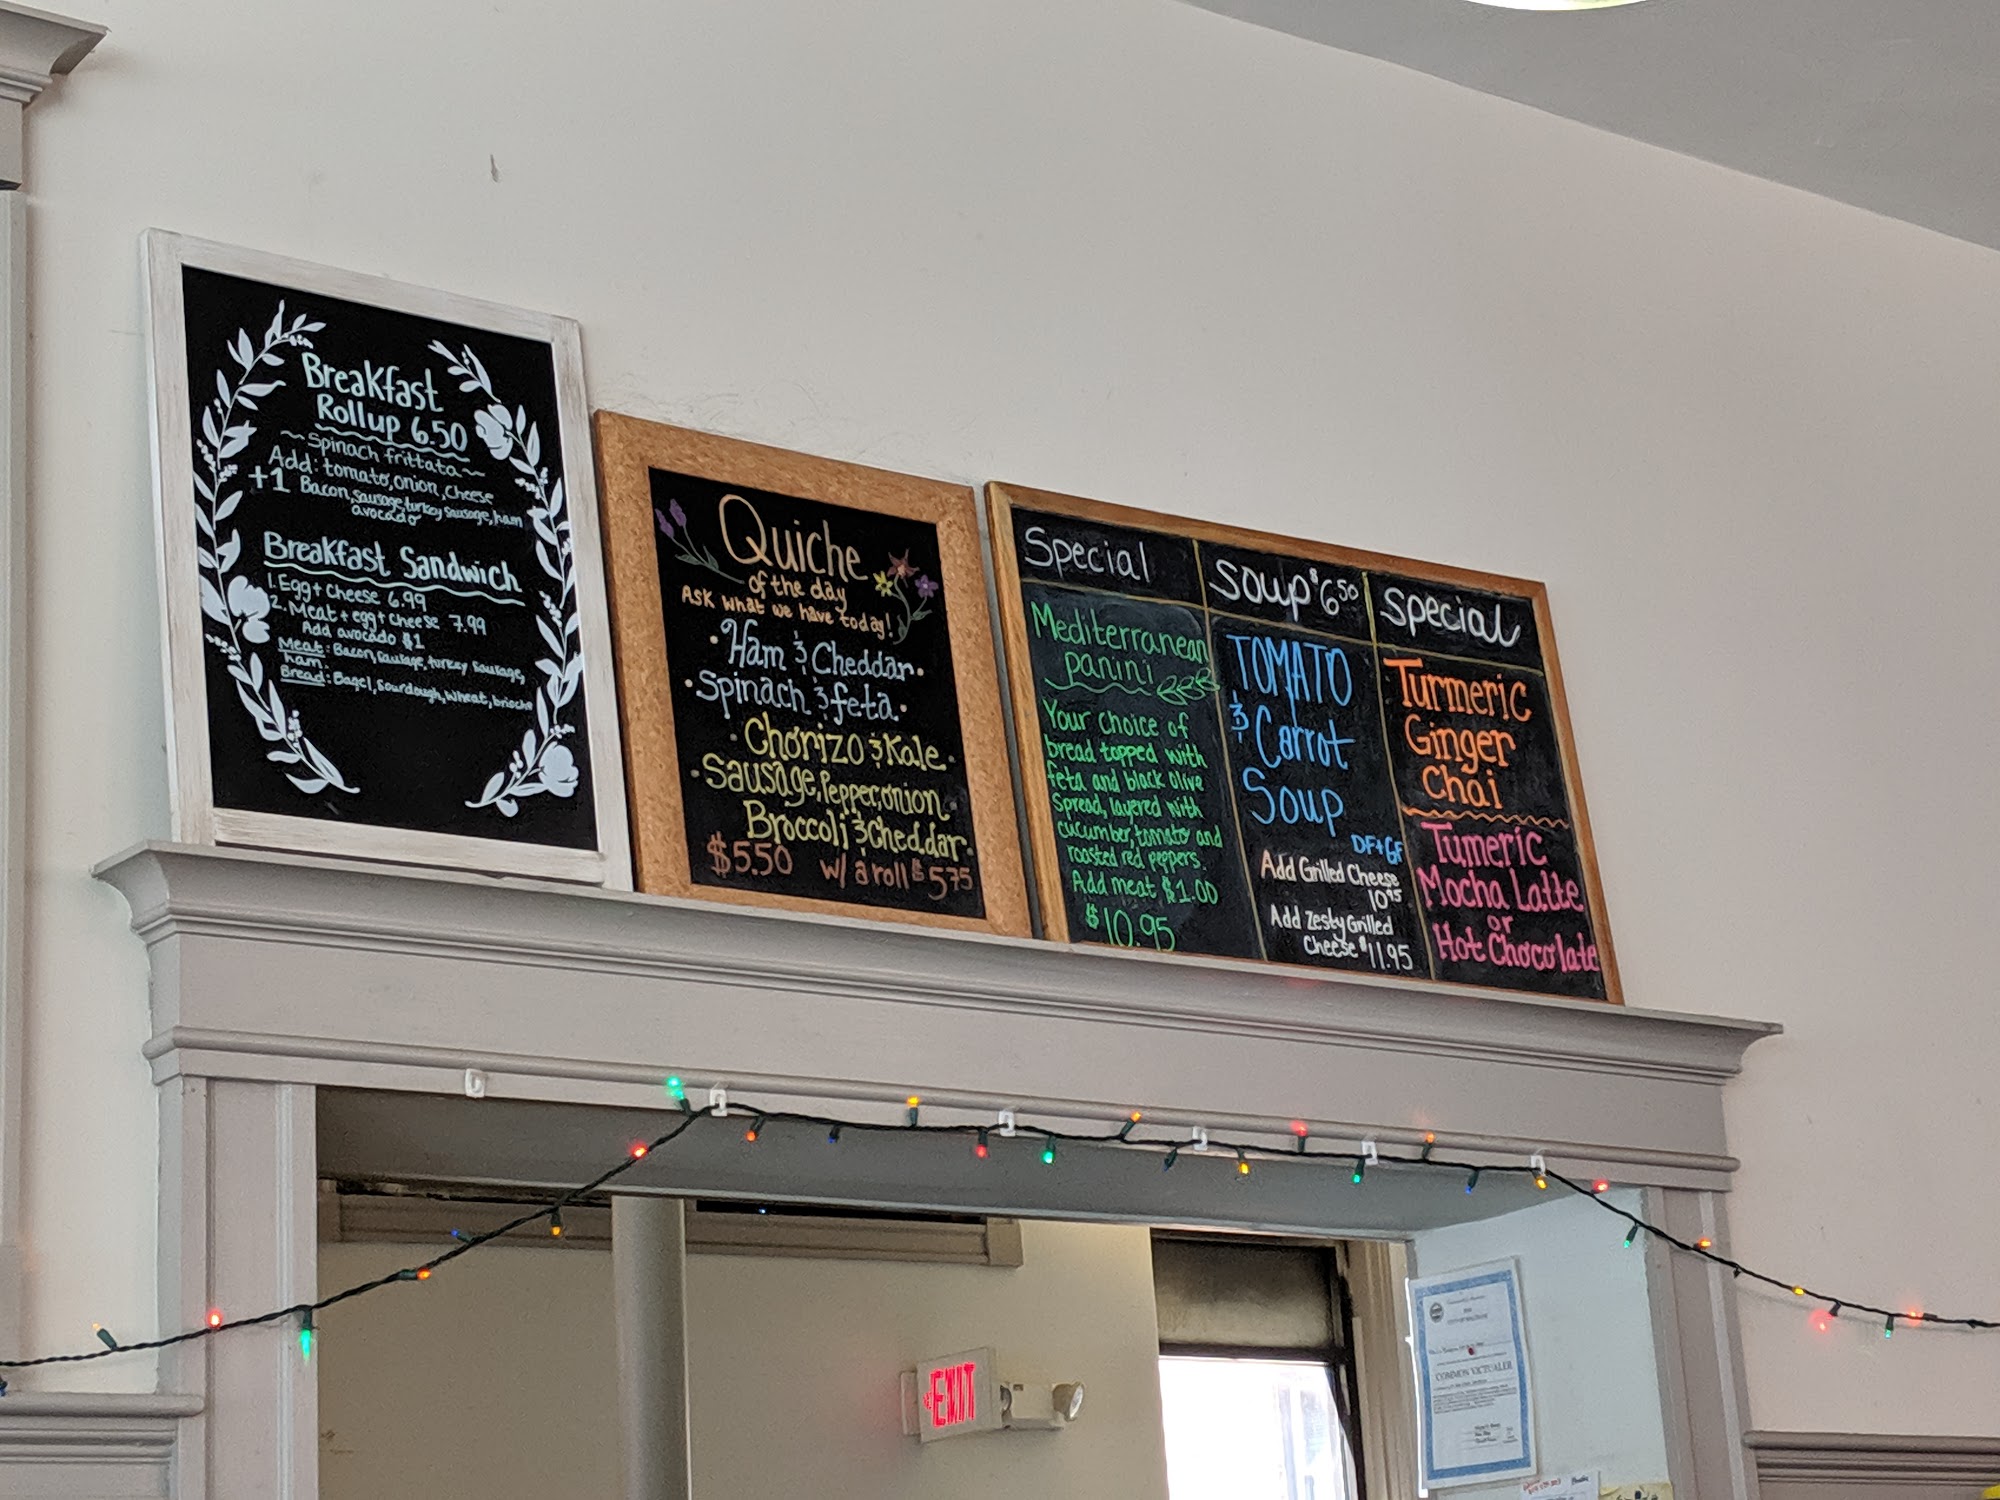 Breakfast
Rollup 6.50
~Spinach frittata~
Add: tomato, onion, cheese
+1 Bacon, sausage, turkey sausage, ham
avocado
Breakfast Sandwich
1. Egg + cheese 6.99
2. Meat + egg + cheese 7.99
Add avocado $1
Meat: Bacon, sausage, turkey sausage,
ham
Bread: Bagel, Sourdough, wheat, brioche
Quiche
of the day
Ask what we have today!
• Ham & Cheddar •
• Spinach & feta •
• Chorizo & Kale •
• Sausage, Pepper, onion •
Broccoli & Cheddar •
$5.50 w/ a roll $5.75
Special
Mediterranean
panini
Your choice of
bread topped with
feta and black olive
spread, layered with
cucumber, tomato and
roasted red peppers.
Add meat $1.00
$10.95
Soup $6.50
TOMATO
& Carrot
Soup
DF+GF
Add Grilled Cheese
10.95
Add Zesty Grilled
Cheese $11.95
Special
Turmeric
Ginger
Chai
Tumeric
Mocha Latte
or
Hot Chocolate
EXIT
COMMON VICTUALER